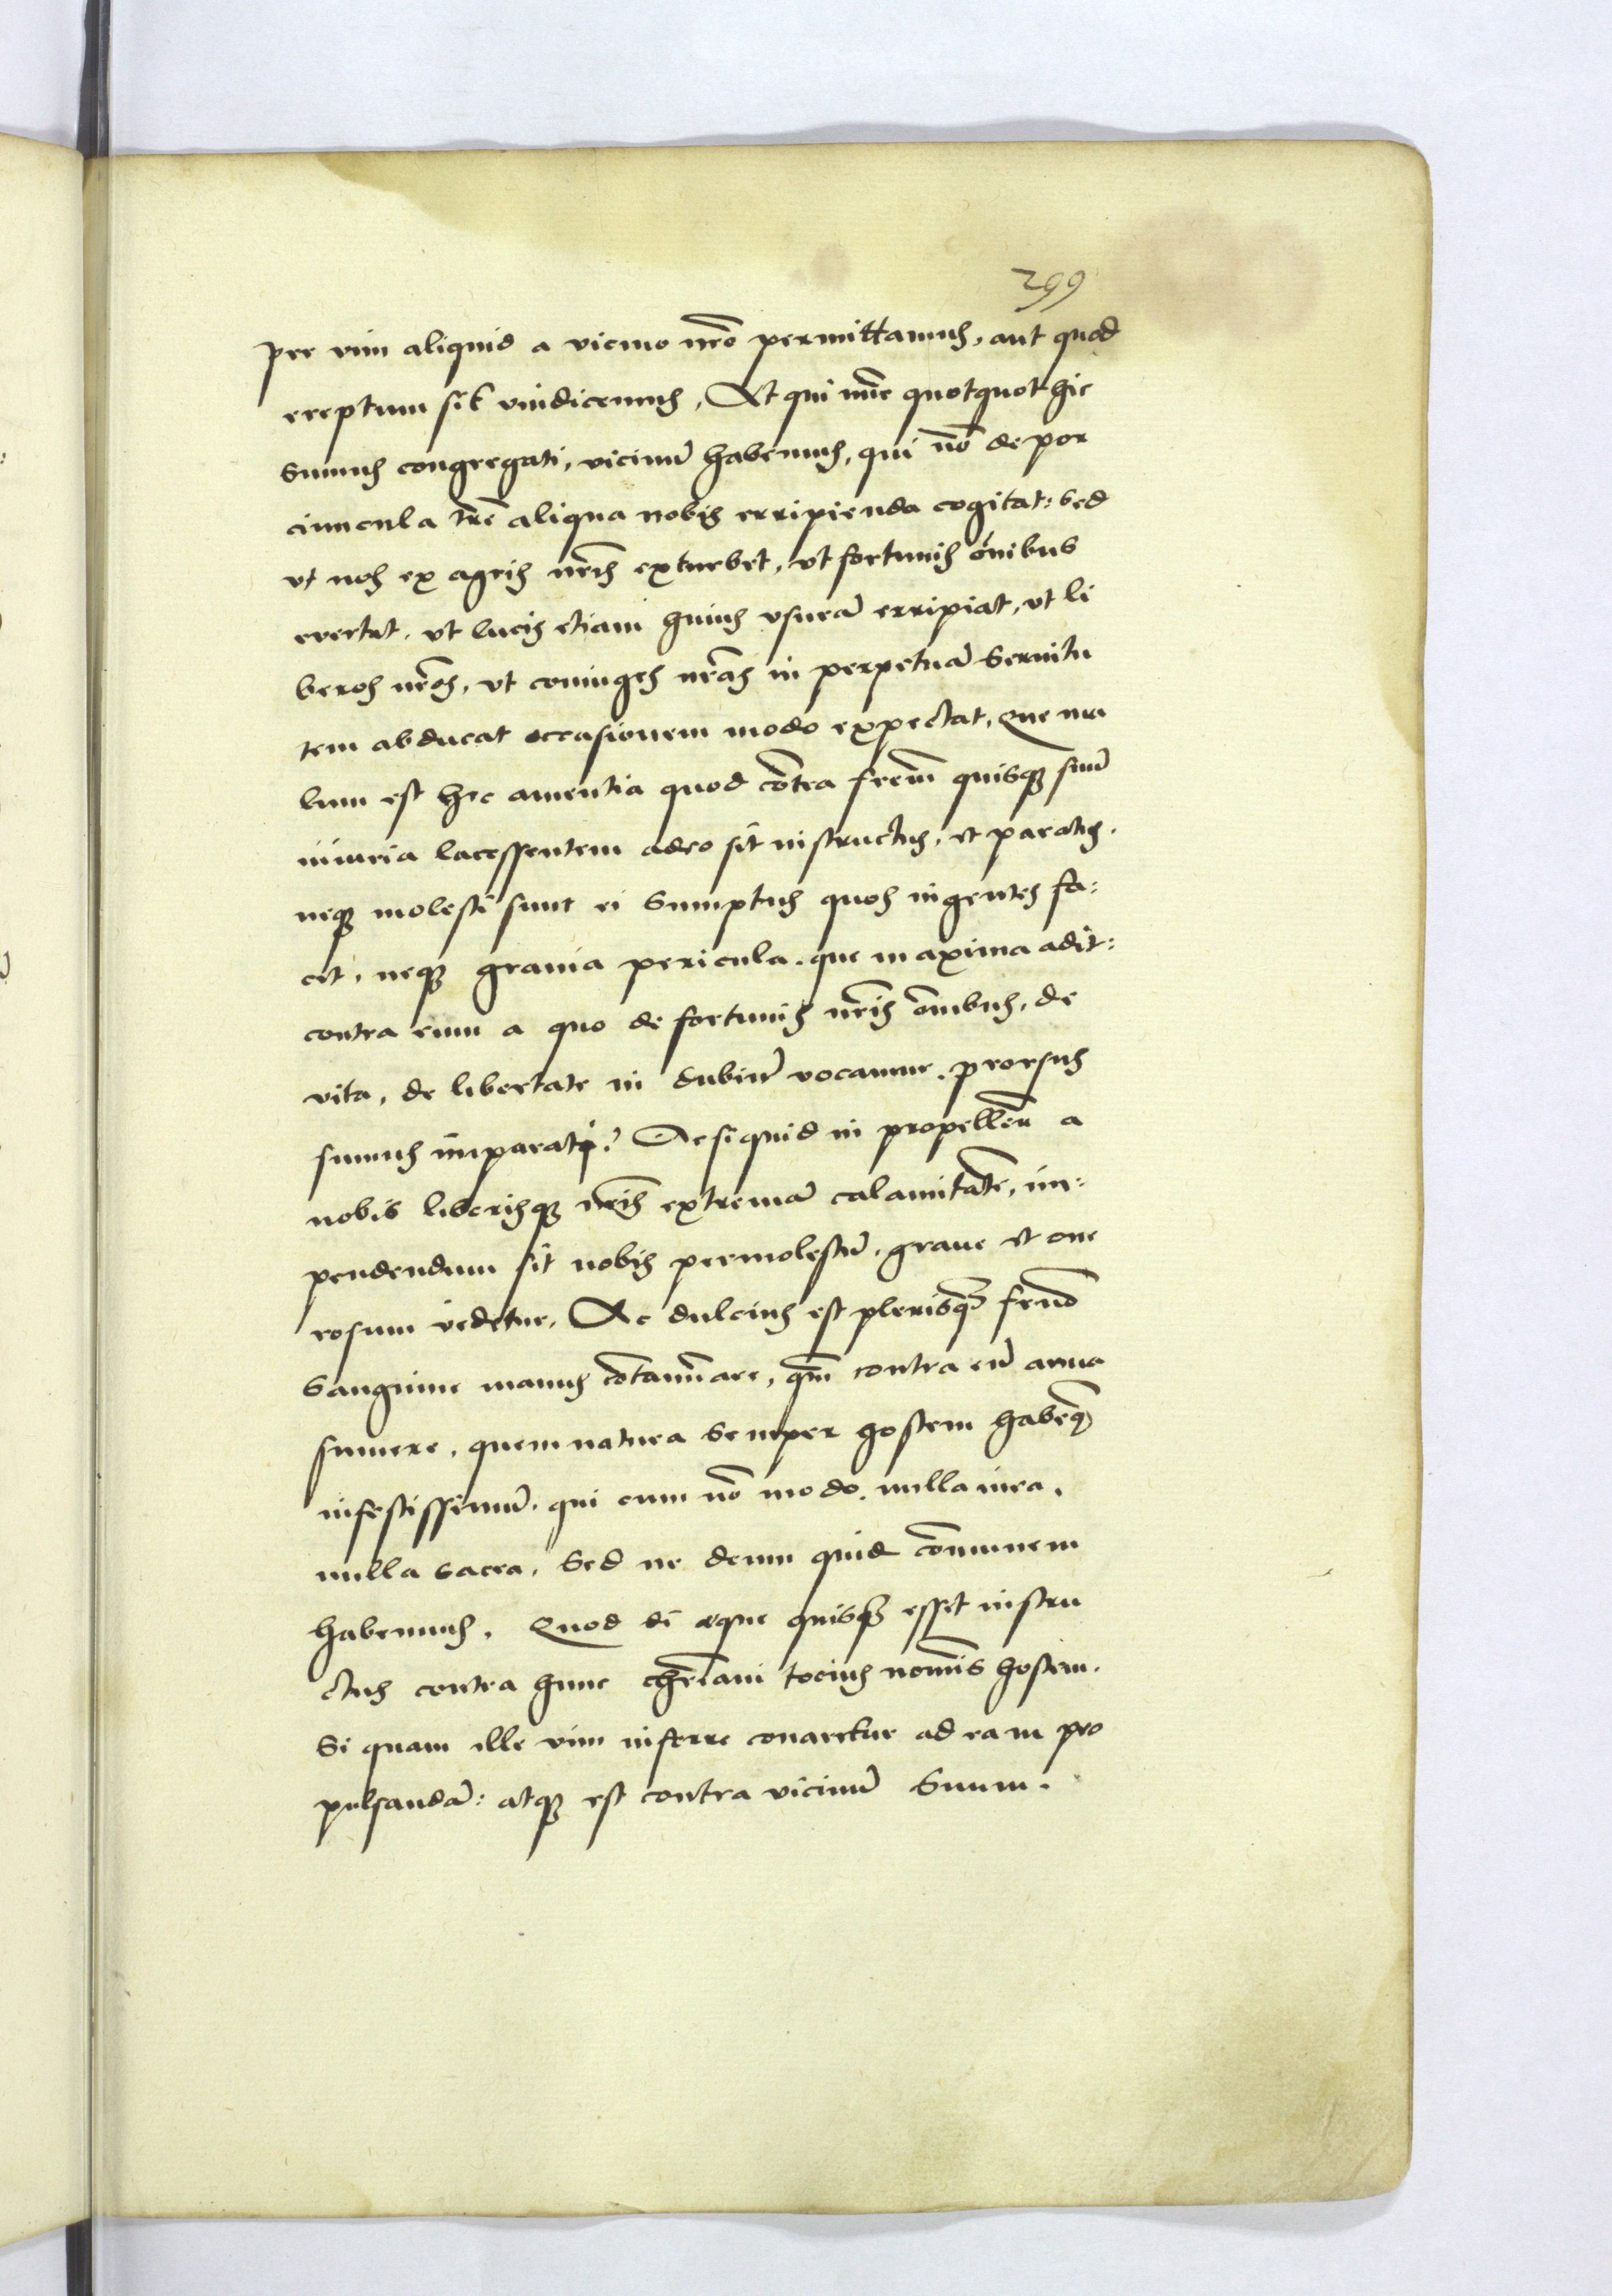 299
per vim aliquid a vicino nr̄o permittamus, aut quod
ereptum sit vindicemus, At qui nūc quotquot hic
sumus congregati, vicinū habemus, qui nō de por
ciuncula tr̄e aliqua nobis erripienda cogitat: sed
vt nos ex agris nr̄is exturbet, vt fortunis ōnibus
evertat, vt lucis etiam huius vsurā erripiat, vt li
beros nr̄os, vt coniuges nr̄as in perpetuā servitu
tem abducat occasionem modo expectat, Que ma
lum est hec amentia quod cōtra fr̄em quisq suū
iniuria lacessentem adeo sit instructus, et paratus,
neq molesti sunt ei sumptus quos ingentes fa:
cit, neq gravia pericula, que maxima adit:
contra eum a quo de fortunis nr̄is ōmibus, de
vita, de libertate in dubiū vocamur, prorsus
sumus imparati? Ac si quid in propellēn a
nobis liberisq nr̄is extremā calamitatē, im:
pendendum sit nobis permolestū, grave et one
rosum videtur, Ac dulcius est plerisq fr̄no
sanguine manus cōtaminare, qm contra eū arma
sumere, quem natura semper hostem habemq
infestissimū, qui cum nō modo, nulla iura,
nulla sacra, sed ne deum quid cōmunem
habemus. Quod si eque quisq esset instru
ctus contra hunc chr̄iani tocius nomīs hostem,
Si quam ille vim inferre conaretur ad eam pro
pulsandā: atq est contra vicinū suum.